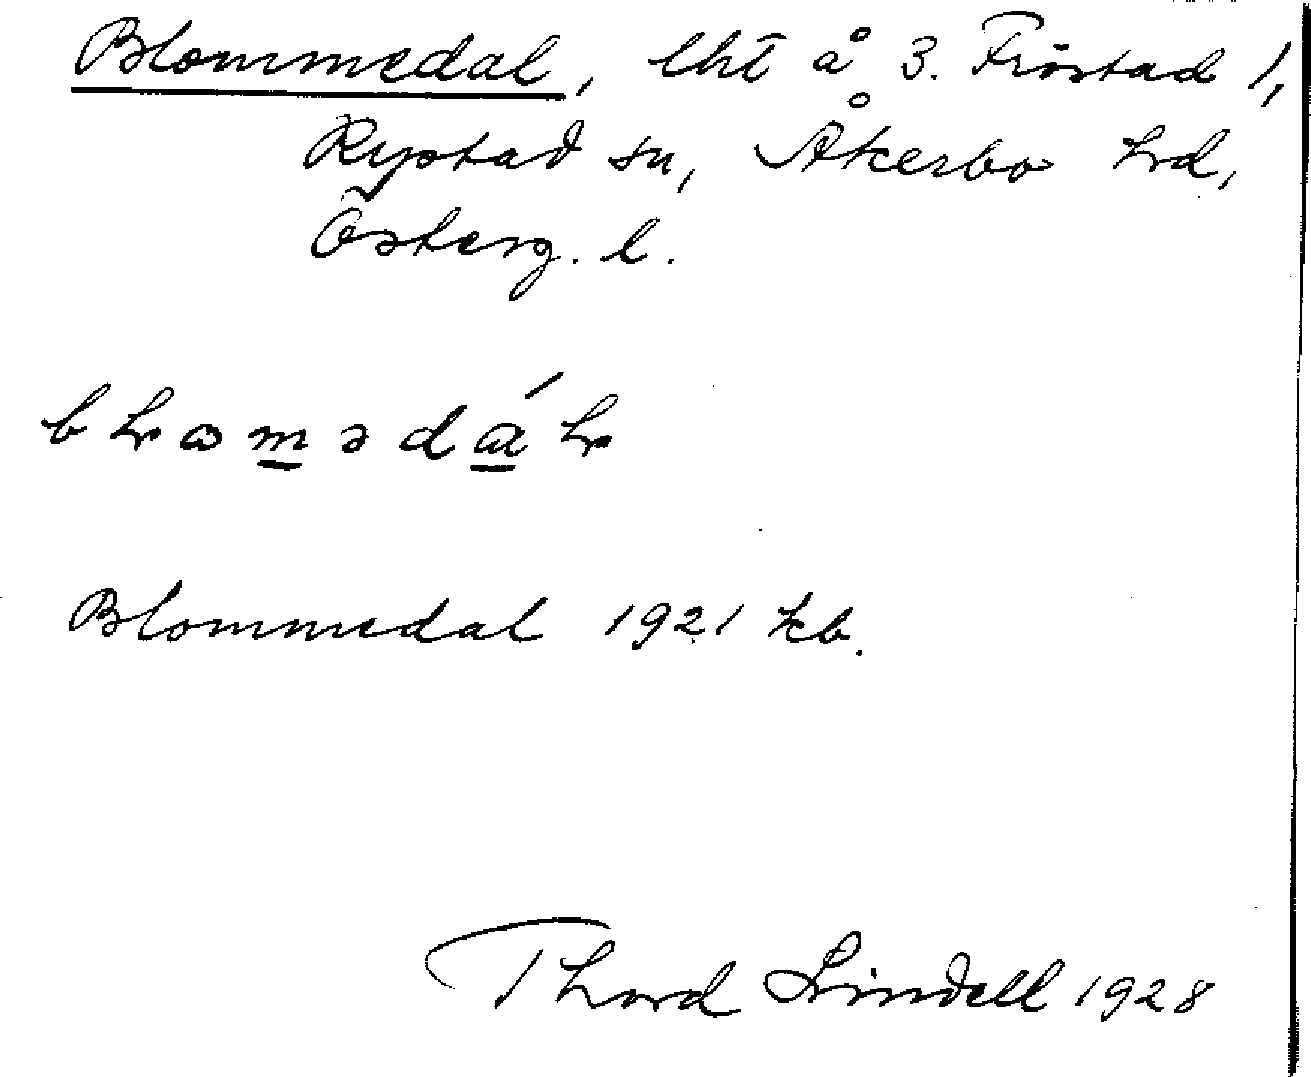 Blommedal, lht å 3. Fröstad 1,
Rystad sn, Åkerbo hrd,
Österg. l.
Blommedal 1921 kb.
Thord Lindell 1928